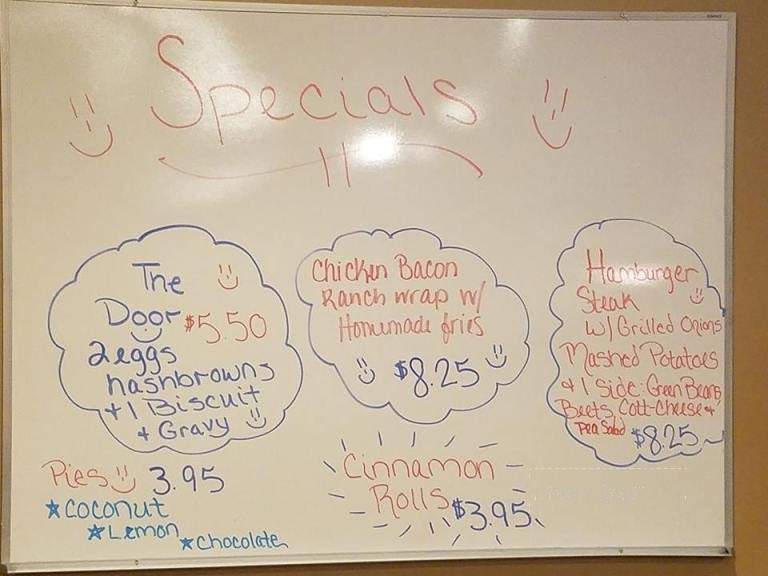 Specials
The
Door $5.50
2eggs
hashbrowns
+ 1 Biscuit
+ Gravy
Chicken Bacon
Ranch wrap w/
Homemade fries
$8.25
Hamburger
Steak
w/Grilled Onions
Mashed Potatoes
+ 1 Side: Green Beans
Beets, Cott-Cheese +
Pea Salad $8.25
Pies 3.95
*Coconut
*Lemon
*Chocolate
Cinnamon
Rolls $3.95